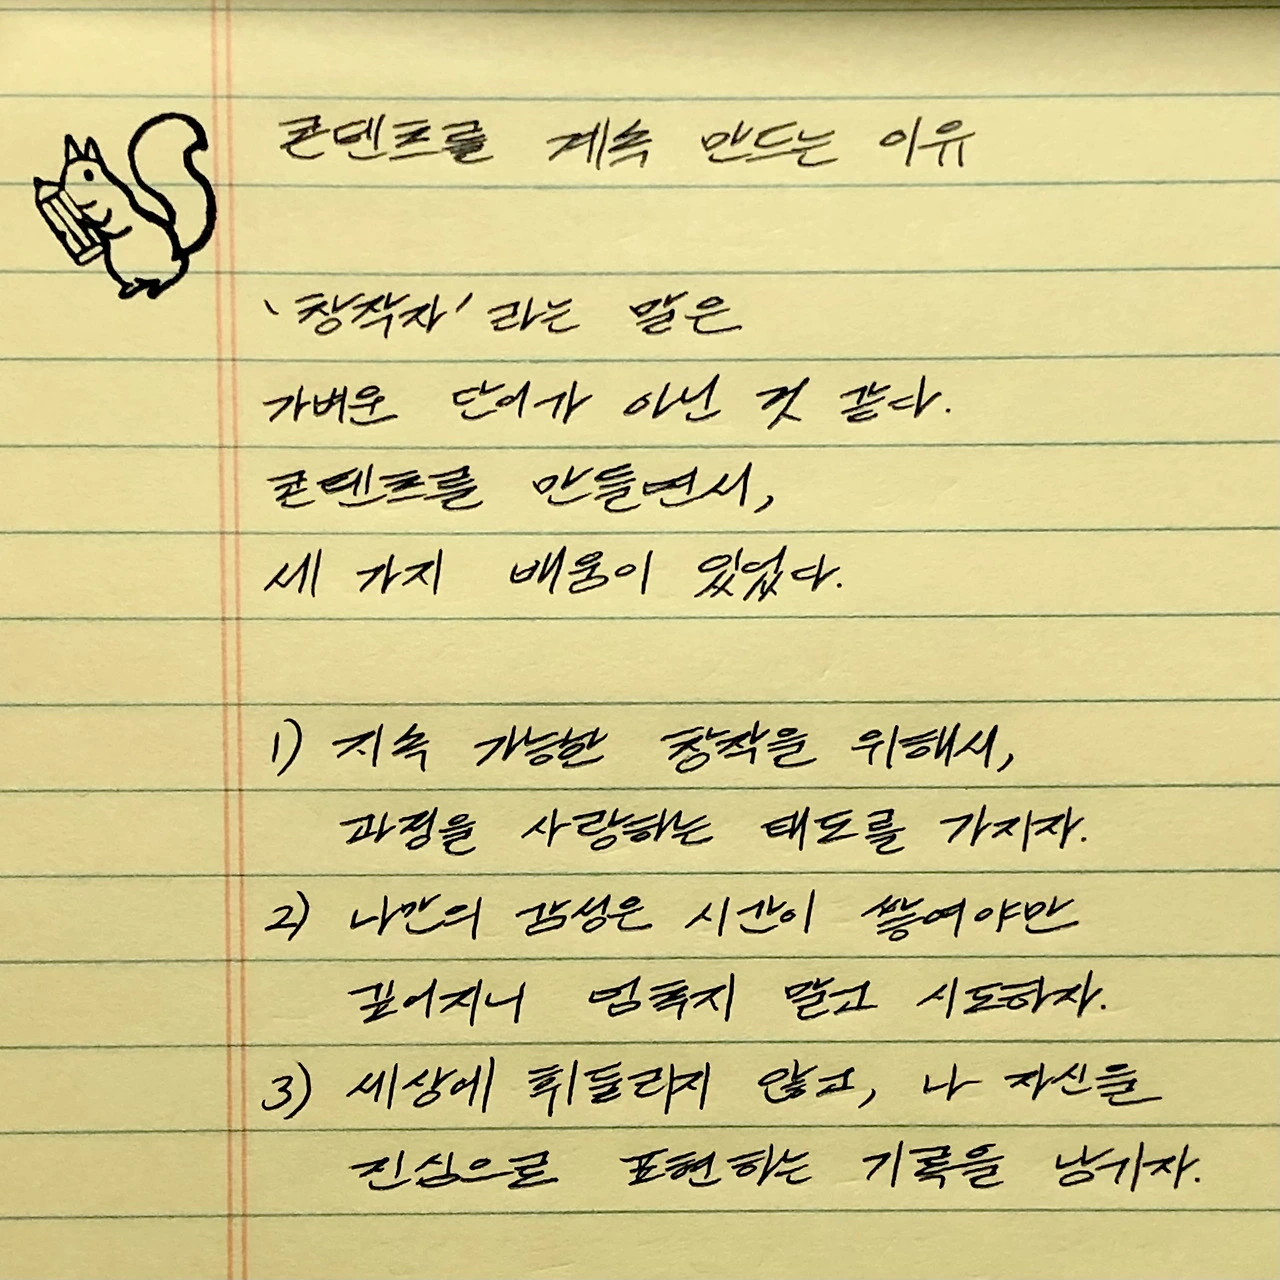 콘텐츠를 계속 만드는 이유
'창작자'라는 말은
가벼운 단어가 아닌 것 같다.
콘텐츠를 만들면서,
세 가지 배움이 있었다.
1) 지속 가능한 창작을 위해서,
과정을 사랑하는 태도를 가지자.
2) 나만의 감성은 시간이 쌓여야만
깊어지니 멈추지 말고 시도하자.
3) 세상에 휘둘리지 않고, 나 자신을
진심으로 표현하는 기록을 남기자.